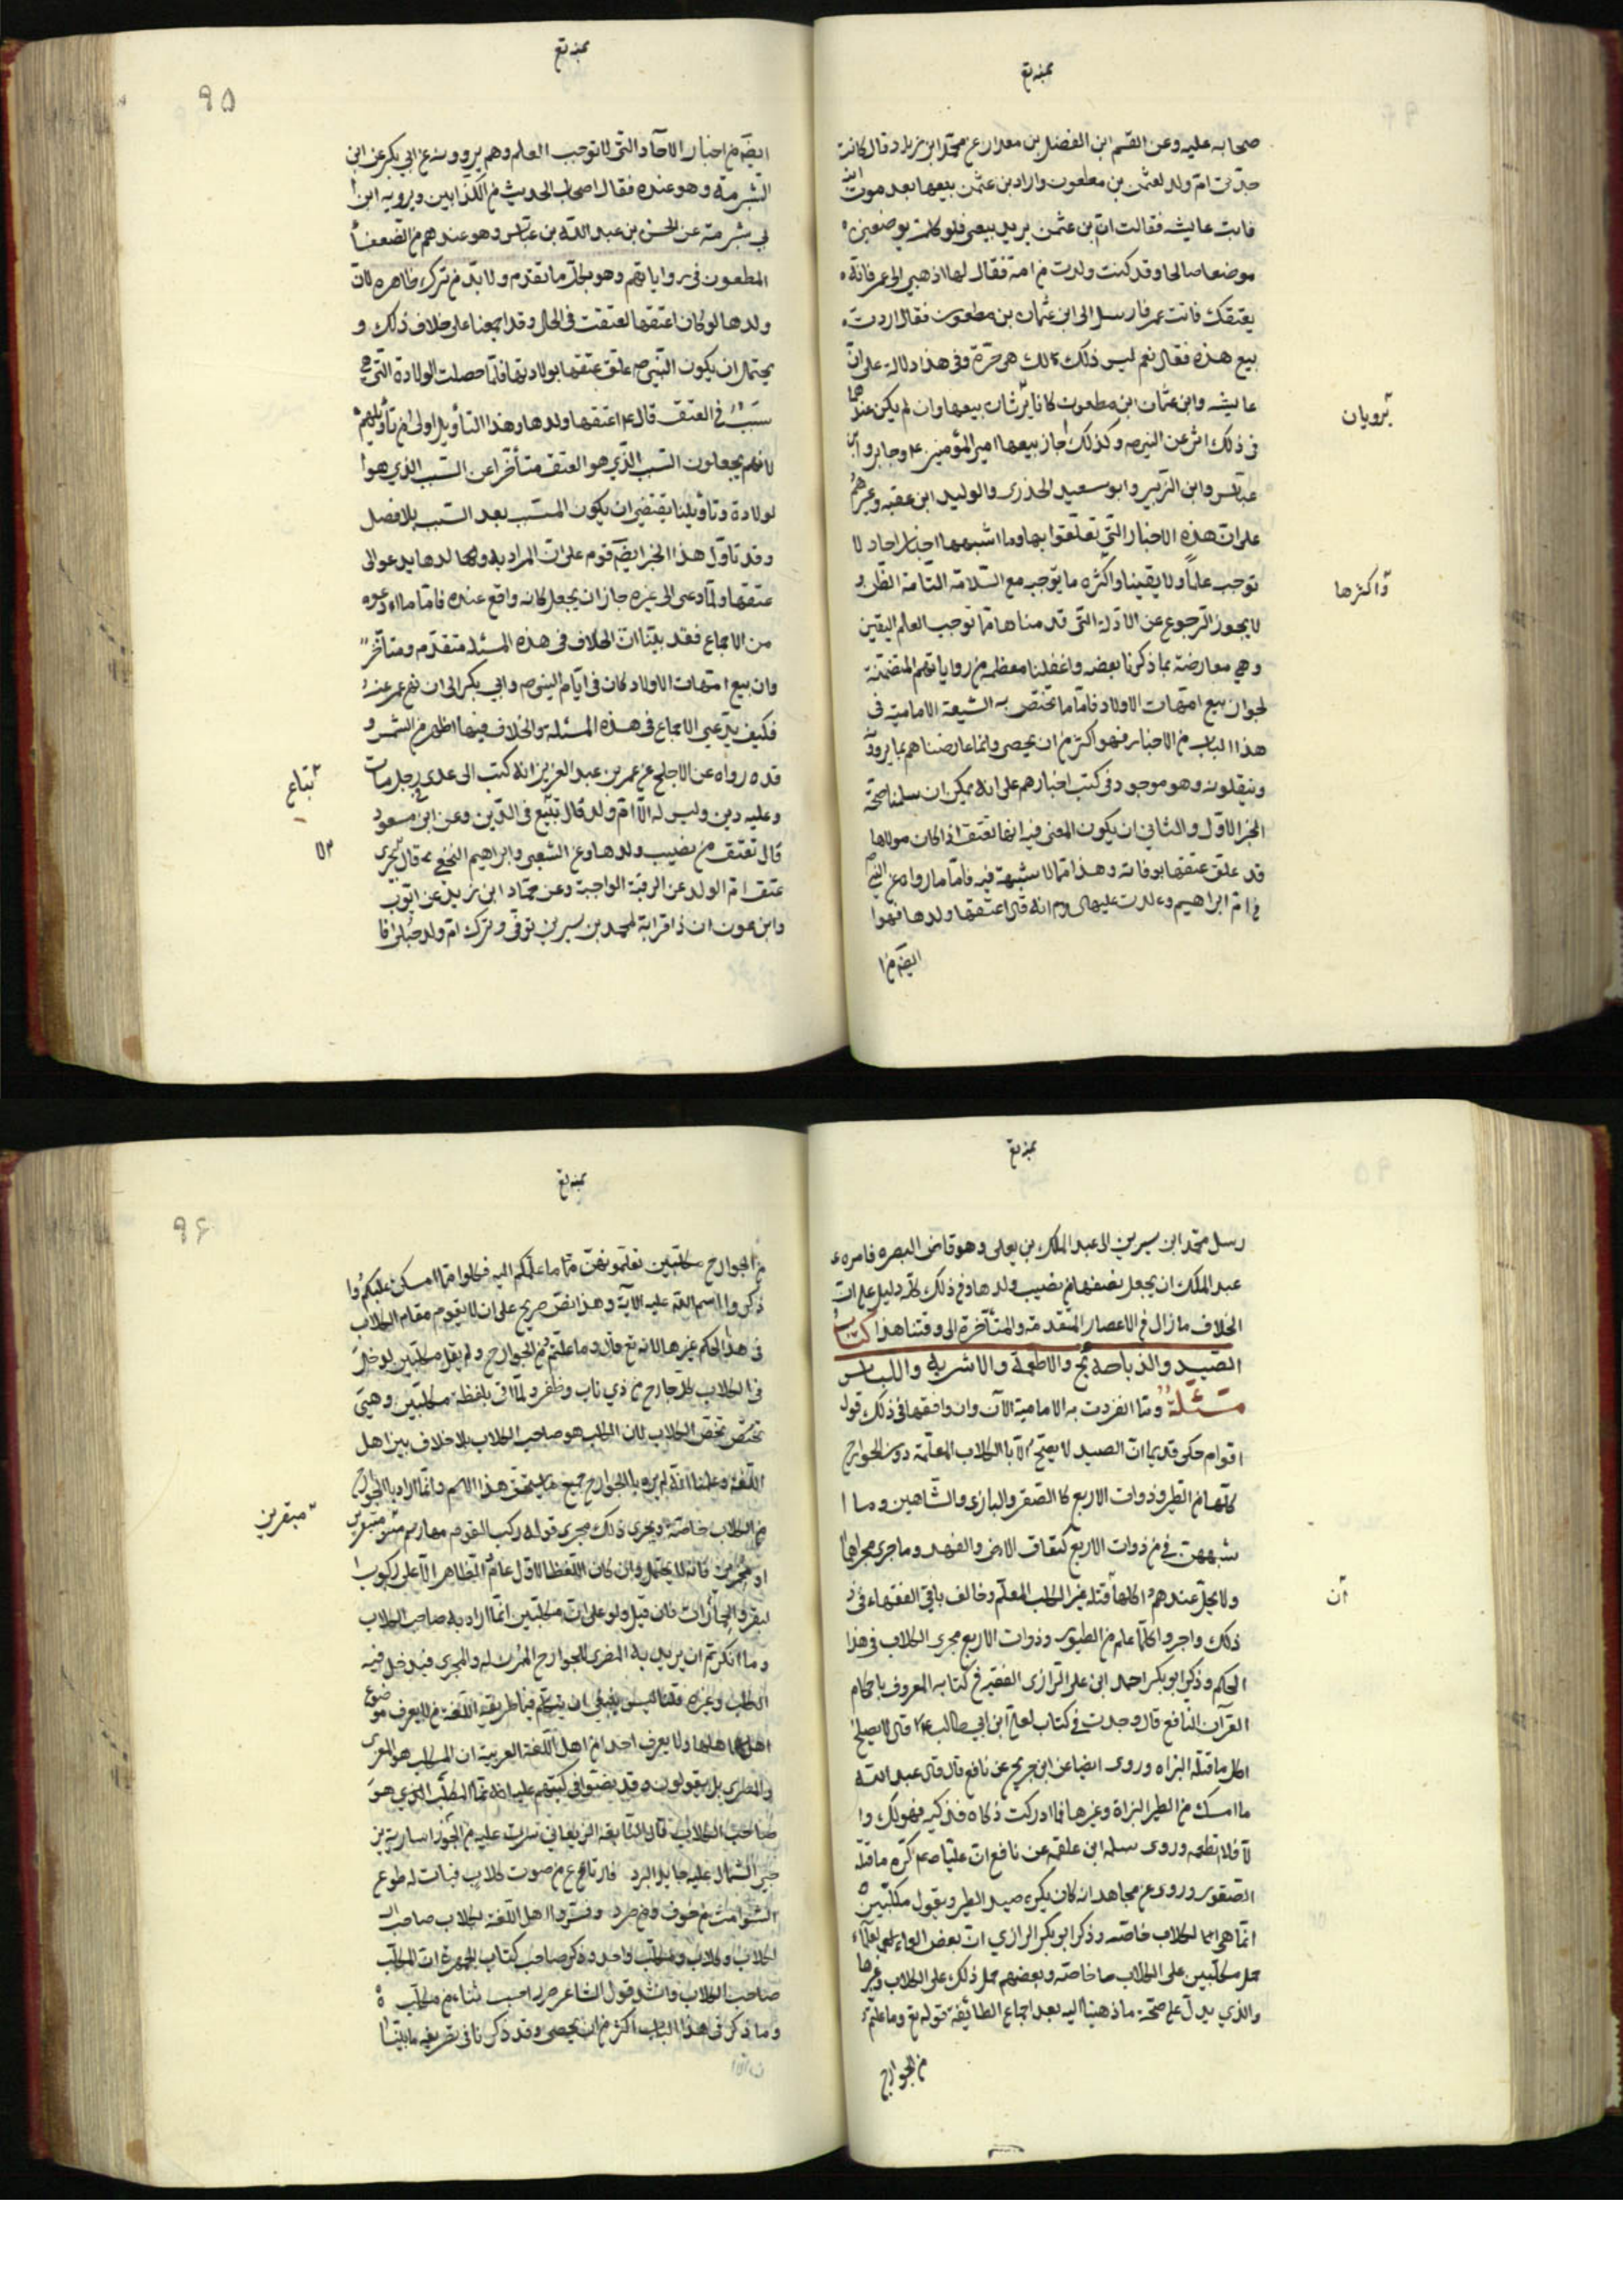 صحابه عليه وعن القسم ابن الفضل بن معدان عن محمد ابن زياد قال كانت
جدتى ام ولد لعثمن بن مظعون واراد ابن عثمن بيعها بعد موت ابيه
فاتت عايشه فقالت ان بن عثمن يريد بيعى فلو كلمت يوضعني
موضعا صالحا وقد كنت ولدت من ابيه فقال لها اذهبي الى عمر فانه
يعتقك فاتت عمر فارسل الى ابن عثمان بن مظعون فقال اردت
بيع هذه فقال نعم ليس ذلك لك هي حرة وفي هذا دلالة على ان
عايشه وابن عثمان ابن مظعون كانا يريان بيعها وان لم يكن عندهما
يرويان
فى ذلك اثر عن النبى ص وكذلك اجاز بيعها امير المؤمنين ع وجابر وابن
عباس وابن الزبير وابو سعيد الخدرى والوليد ابن عقبه وغيرهم
على ان هذه الاخبار التي تعلقوا بها وما اشبهها اخبار احاد لا
توجب علماً ولا يقينا واكثره ما يوجب مع السلامة التامة الظن و
واكثرها
لا يجوز الرجوع عن الادلة التى قدمناها مما توجب العلم اليقين
وهي معارضة بما ذكرنا بعضه واغفلنا معظمه من رواياتهم المتضمنة
لجواز بيع امهات الاولاد فاما ما تختص به الشيعة الامامية فى
هذا الباب من الاخبار فهو اكثر من ان يحصى وانما عارضناهم بما يروونه
وينقلونه وهو موجود فى كتب اخبارهم على انه يمكن ان سلمنا صحة
الخبر الاول والثاني ان يكون المعنى فيه انها تعتق اذا كان مولاها
قد علق عتقها بوفاته وهذا مما لا شبهة فيه فاما ما رواه عن النبي ص
في ام ابراهيم وولدت عليه انه قال اعتقها ولدها فهو
ايضا من ا
ايضا من اخبار الاحاد التى لا توجب العلم وهم يروونه عن ابي بكر عن ابن
الشبرمة وهو عنده فقال اصحاب الحديث من الكذابين ويرويه ابن ا
بي شبرمة عن الحسن بن عبد الله بن عباس وهو عندهم من الضعفا
المطعون فى رواياتهم وهو بخل ما تقدم ولا بد من ترك ظاهره لان
ولدها لو كان اعتقها لعتقت فى الحال وقد اجمعنا على خلاف ذلك و
يحتمل ان يكون النبي ص علق عتقها بولادتها فلما حصلت الولادة التى هي
سبب في العتق قال ع اعتقها ولدها وهذا التأويل اولى من تأويلهم
لانهم يجعلون السبب الذي هو العتق متأخرا عن السبب الذي هو ا
لولادة وتأويلنا يقتضي ان يكون المسبب بعد السبب بلا فصل
وقد تاول هذا الخبر ايضا قوم على ان المراد به ولدها يدعو الى
عتقها ولما دعى الى غيره جاز ان يجعل كانه واقع عنده فاما ما ادعوه
من الاجماع فقد بينا ان الخلاف فى هذه المسئلة متقدم ومتأخر
وان بيع امهات الاولاد كان فى ايام النبى ص وابي بكر الى ان نهى عمر عنه
فكيف يدعي الاجماع فى هذه المسئلة والخلاف فيها اظهر من الشمس و
قد رواه عن الاجلح عن عمر بن عبد العزيز انه كتب الى عدى في رجل مات
تباع
وعليه دين وليس له الا ام ولد قال تبيع فى الدين وعن ابن مسعود
قال تعتق من نصيب ولدها وعن الشعبى وابراهيم النخعي قال يجرى
لا
عتق ام الولد عن الرقبة الواجبة وعن حماد ابن زيد عن ايوب
وابن عون ان ذا قرابة لمحمد بن سيرين توفى وترك ام ولد حبلى فا
رسل محمد ابن سيرين الى عبد الملك بن يعلى وهو قاضى البصره فامره
عبد الملك ان يجعل نصفها من نصيب ولدها وفي ذلك كله دليل على ان
الخلاف ما زال في الاعصار المتقدمة والمتأخرة الى وقتنا هذا كتاب
الصيد والذباحة والاطعمة والاشربة واللباس
مسئلة ومما انفردت به الامامية الآن وان وافقها فى ذلك قول
اقوام حكى قديما ان الصيد لا يصح الا بالكلاب المعلمة دون الجوارح
كلها من الطير وذوات الاربع كالصقر والبازى والشاهين وما ا
شبههن من ذوات الاربع كعناق الارض والفهد وما جرى مجراهما
ولا يحل عندهم اكل ما قتله غير الكلب المعلم وخالف باقي الفقهاء في
ان
ذلك واجروا كلما علم من الطيور وذوات الاربع مجرى الكلاب فى هذا
الحكم وذكر ابو بكر احمد ابن على الرازى الفقيه في كتابه المعروف باحكام
القرآن النافع قال وجدت في كتاب لعلي ابن ابي طالب ع قال لا يصلح
اكل ما قتله البزاه وروى ايضا عن ابن جريج عن نافع قال قال عبد الله
ما امسك من الطير البزاة وغيرها فما ادركت ذكاه فذكيه فهو لك وا
لا فلا تطعمه وروى سلمه ابن علقمه عن نافع ان عليا ع كره ما قتله
الصقور وروى عن مجاهد انه كان يكره صيد الطير ويقول مكلبين
انما هى الكلاب خاصه وذكر ابو بكر الرازي ان بعض العلماء
حمل مكلبين على الكلاب خاصة وبعضهم حمل ذلك على الكلاب وغيرها
والذي يدل على صحة ما ذهبنا اليه بعد اجماع الطائفة قوله تع وما علمتم
من الجوارح
من الجوارح مكلبين تعلمونهن مما علمكم الله فكلوا مما امسكن عليكم وا
ذكروا اسم الله عليه الآية وهذا نص صريح على ان لا يقوم مقام الكلاب
فى هذا الحكم غيرها لانه تع قال وما علمتم من الجوارح ولم يقل مكلبين لدخل
فى الكلاب كل جارح من ذي ناب وظفر ولما اتى بلفظة مكلبين وهى
تختص تخص الكلاب لان المكلب هو صاحب الكلاب بلا خلاف بين اهل
اللغة وعلمنا انه لم يرد بالجوارح جميع ما يستحق هذا الاسم وانما اراد بالجوارح
من الكلاب خاصة ويجرى ذلك مجرى قوله ركب القوم مهارهم متبقرين
متبقرين
او مجمزين فانه لا يحتمل وان كان اللفظ الاول عام الظاهر الا على ركوب ا
لبقر والجمازات فان قيل ولو على ان مكلبين انما اراد به صاحب الكلاب
وما انكرتم ان يريد به المضرى للجوارح الممرن لها والمجرى فيدخل فيه
الكلب وغيره قلنا ليس ينبغى ان يتكلم فيما طريقه اللغة من لا يعرف موضوع
اهلها ولا يعرف احد من اهل اللغة العربية ان المكلب هو المغرى
والمضرى بل يقولون وقد نصوا فى كتبهم عليه انما المكلب الذي هو
صاحب الكلاب قال النابغه الذبيانى سرت عليه من الجوزا سارية تز
جي الشمال عليه جامد البرد فارتاع من صوت كلاب فبات له طوع
الشوامت من خوف ومن صرد وفسر اهل اللغة الكلاب صاحب ال
كلاب وكلاب ومكلب واحد وذكر صاحب كتاب الجمهرة ان المكلب
صاحب الكلاب وانشد قول الشاعر ضراء احست نبأة من مكلب
وما ذكر فى هذا الباب اكثر من ان يحصى وقد ذكرنا فى تفريغه ما بيننا